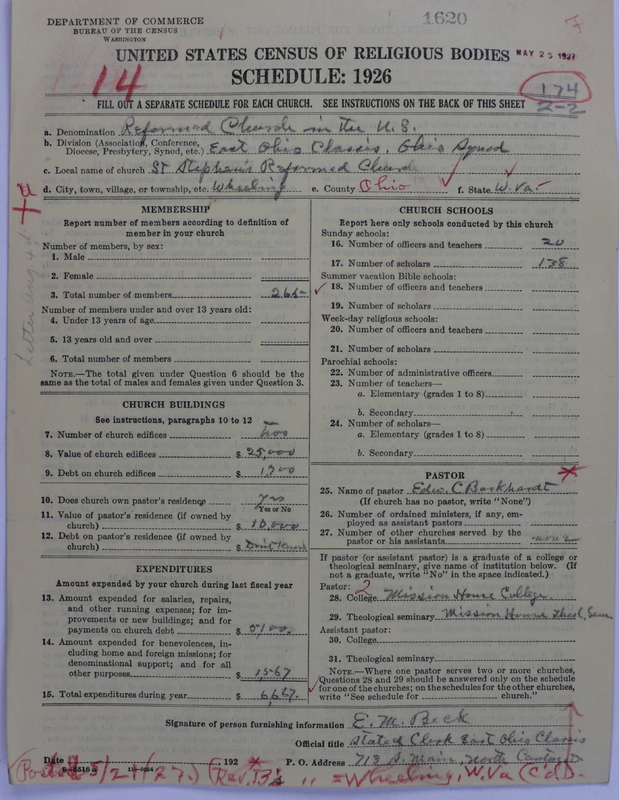 DEPARTMENT OF COMMERCE
BUREAU OF THE CENSUS
WASHINGTON
1620
7
UNITED STATES CENSUS OF RELIGIOUS BODIES
MAY 25 1927
SCHEDULE: 1926
14
174
2-2
FILL OUT A SEPARATE SCHEDULE FOR EACH CHURCH. SEE INSTRUCTIONS ON THE BACK OF THIS SHEET
a. Denomination Reformed Church in the U.S.
b. Division (Association, Conference, Diocese, Presbytery, Synod, etc.) East Ohio Classis, Ohio Synod
c. Local name of church St Stephan's Reformed Church
d. City, town, village, or township, etc. Wheeling e. County Ohio f. State W. Va.
MEMBERSHIP
Report number of members according to definition of
member in your church
Number of members, by sex:
1. Male
2. Female
3. Total number of members 265
Number of members under and over 13 years old:
4. Under 13 years of age
5. 13 years old and over
6. Total number of members
NOTE.—The total given under Question 6 should be
same as the total of males and females given under Question 3.
CHURCH BUILDINGS
See instructions, paragraphs 10 to 12
7. Number of church edifices two
8. Value of church edifices $ 25,000
9. Debt on church edifices $ 1900
10. Does church own pastor's residence yes
Yes or No
11. Value of pastor's residence (if owned by
church) $ 10,000
12. Debt on pastor's residence (if owned by
church) $ Don't Know
EXPENDITURES
Amount expended by your church during last fiscal year
13. Amount expended for salaries, repairs,
and other running expenses; for im-
provements or new buildings; and for
payments on church debt $ 5100.
14. Amount expended for benevolences, in-
cluding home and foreign missions; for
denominational support; and for all
other purposes $ 1567
15. Total expenditures during year $ 6,667.
CHURCH SCHOOLS
Report here only schools conducted by this church
Sunday schools:
16. Number of officers and teachers 20
17. Number of scholars 138
Summer vacation Bible schools:
18. Number of officers and teachers
19. Number of scholars
Week-day religious schools:
20. Number of officers and teachers
21. Number of scholars
Parochial schools:
22. Number of administrative officers
23. Number of teachers—
a. Elementary (grades 1 to 8)
b. Secondary
24. Number of scholars—
a. Elementary (grades 1 to 8)
b. Secondary
PASTOR
25. Name of pastor Edw. C Barkhardt
(If church has no pastor, write "None")
26. Number of ordained ministers, if any, em-
ployed as assistant pastors
27. Number of other churches served by the
pastor or his assistants none
If pastor (or assistant pastor) is a graduate of a college or
theological seminary, give name of institution below. (If
not a graduate, write "No" in the space indicated.)
Pastor: 2
28. College Mission House College
29. Theological seminary Mission House Theol, Sem
Assistant pastor:
30. College
31. Theological seminary
NOTE.—Where one pastor serves two or more churches,
Questions 28 and 29 should be answered only on the schedule
for one of the churches; on the schedules for the other churches,
write "See schedule for church."
Signature of person furnishing information E. M. Beck
Official title Stated Clerk East Ohio Classis
Date 192 P. O. Address 713 S. Main, North Canton O
(Posted 5/24/27) (Rev. B's " = Wheeling, W. Va (C'd).